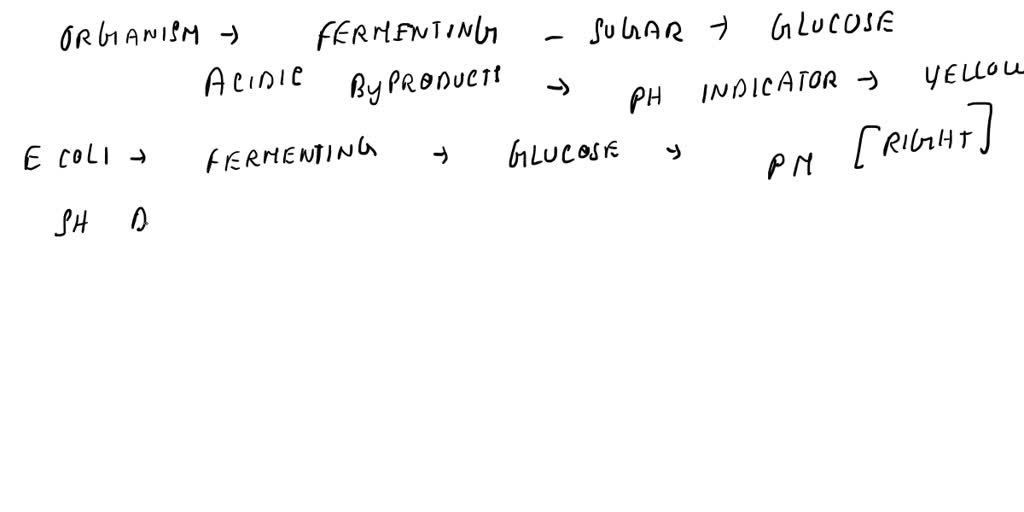 ORGANISM → FERMENTING - SUGAR → GLUCOSE
ACIDIC BYPRODUCTS → PH INDICATOR → YELLOW
E COLI → FERMENTING → GLUCOSE → PM [RIGHT]
SH D